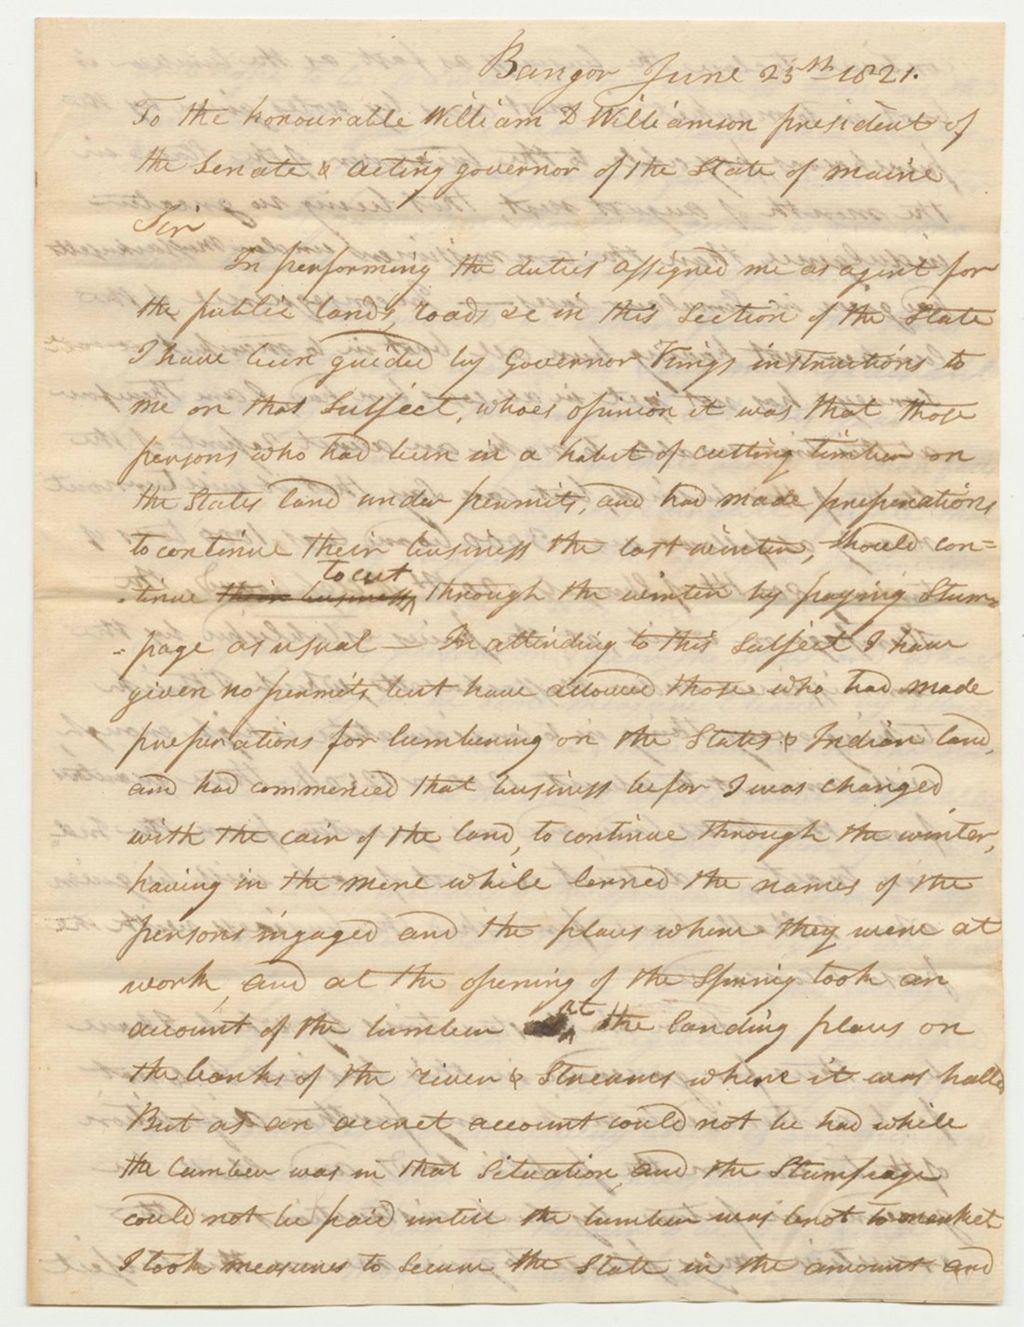 Bangor June 25th 1821.
To the honourable William D Williamson president of
the Senate & acting governor of the State of maine
Sir
In performing the duties assigned me as agent for
the public lands, roads &c in this Section of the State
I have been guided by Governor Kings instructions to
me on that Subject, whoes opinion it was that those
persons who had been in a habit of cutting timber on
the States land under permits, and had made preperations
to continue their business the last winter, Should con=
tinue their business to cut through the winter by paying Stum=
=page as usual — In attending to this Subject I have
given no permits but have allowed those who had made
preperations for lumbering on the States & Indian land,
and had commenced that business befor I was charged
with the cair of the land, to continue through the winter,
having in the mene while lerned the names of the
persons ingaged and the plaus where they were at
work, and at the opening of the Spring took an
account of the lumber at the landing plaus on
the banks of the river & Streames where it was halled
But as an accuret account could not be had while
the lumber was in that Situation, and the Stumpage
could not be paid untill the lumber was brot to market
I took measures to Secure the State in the amount and